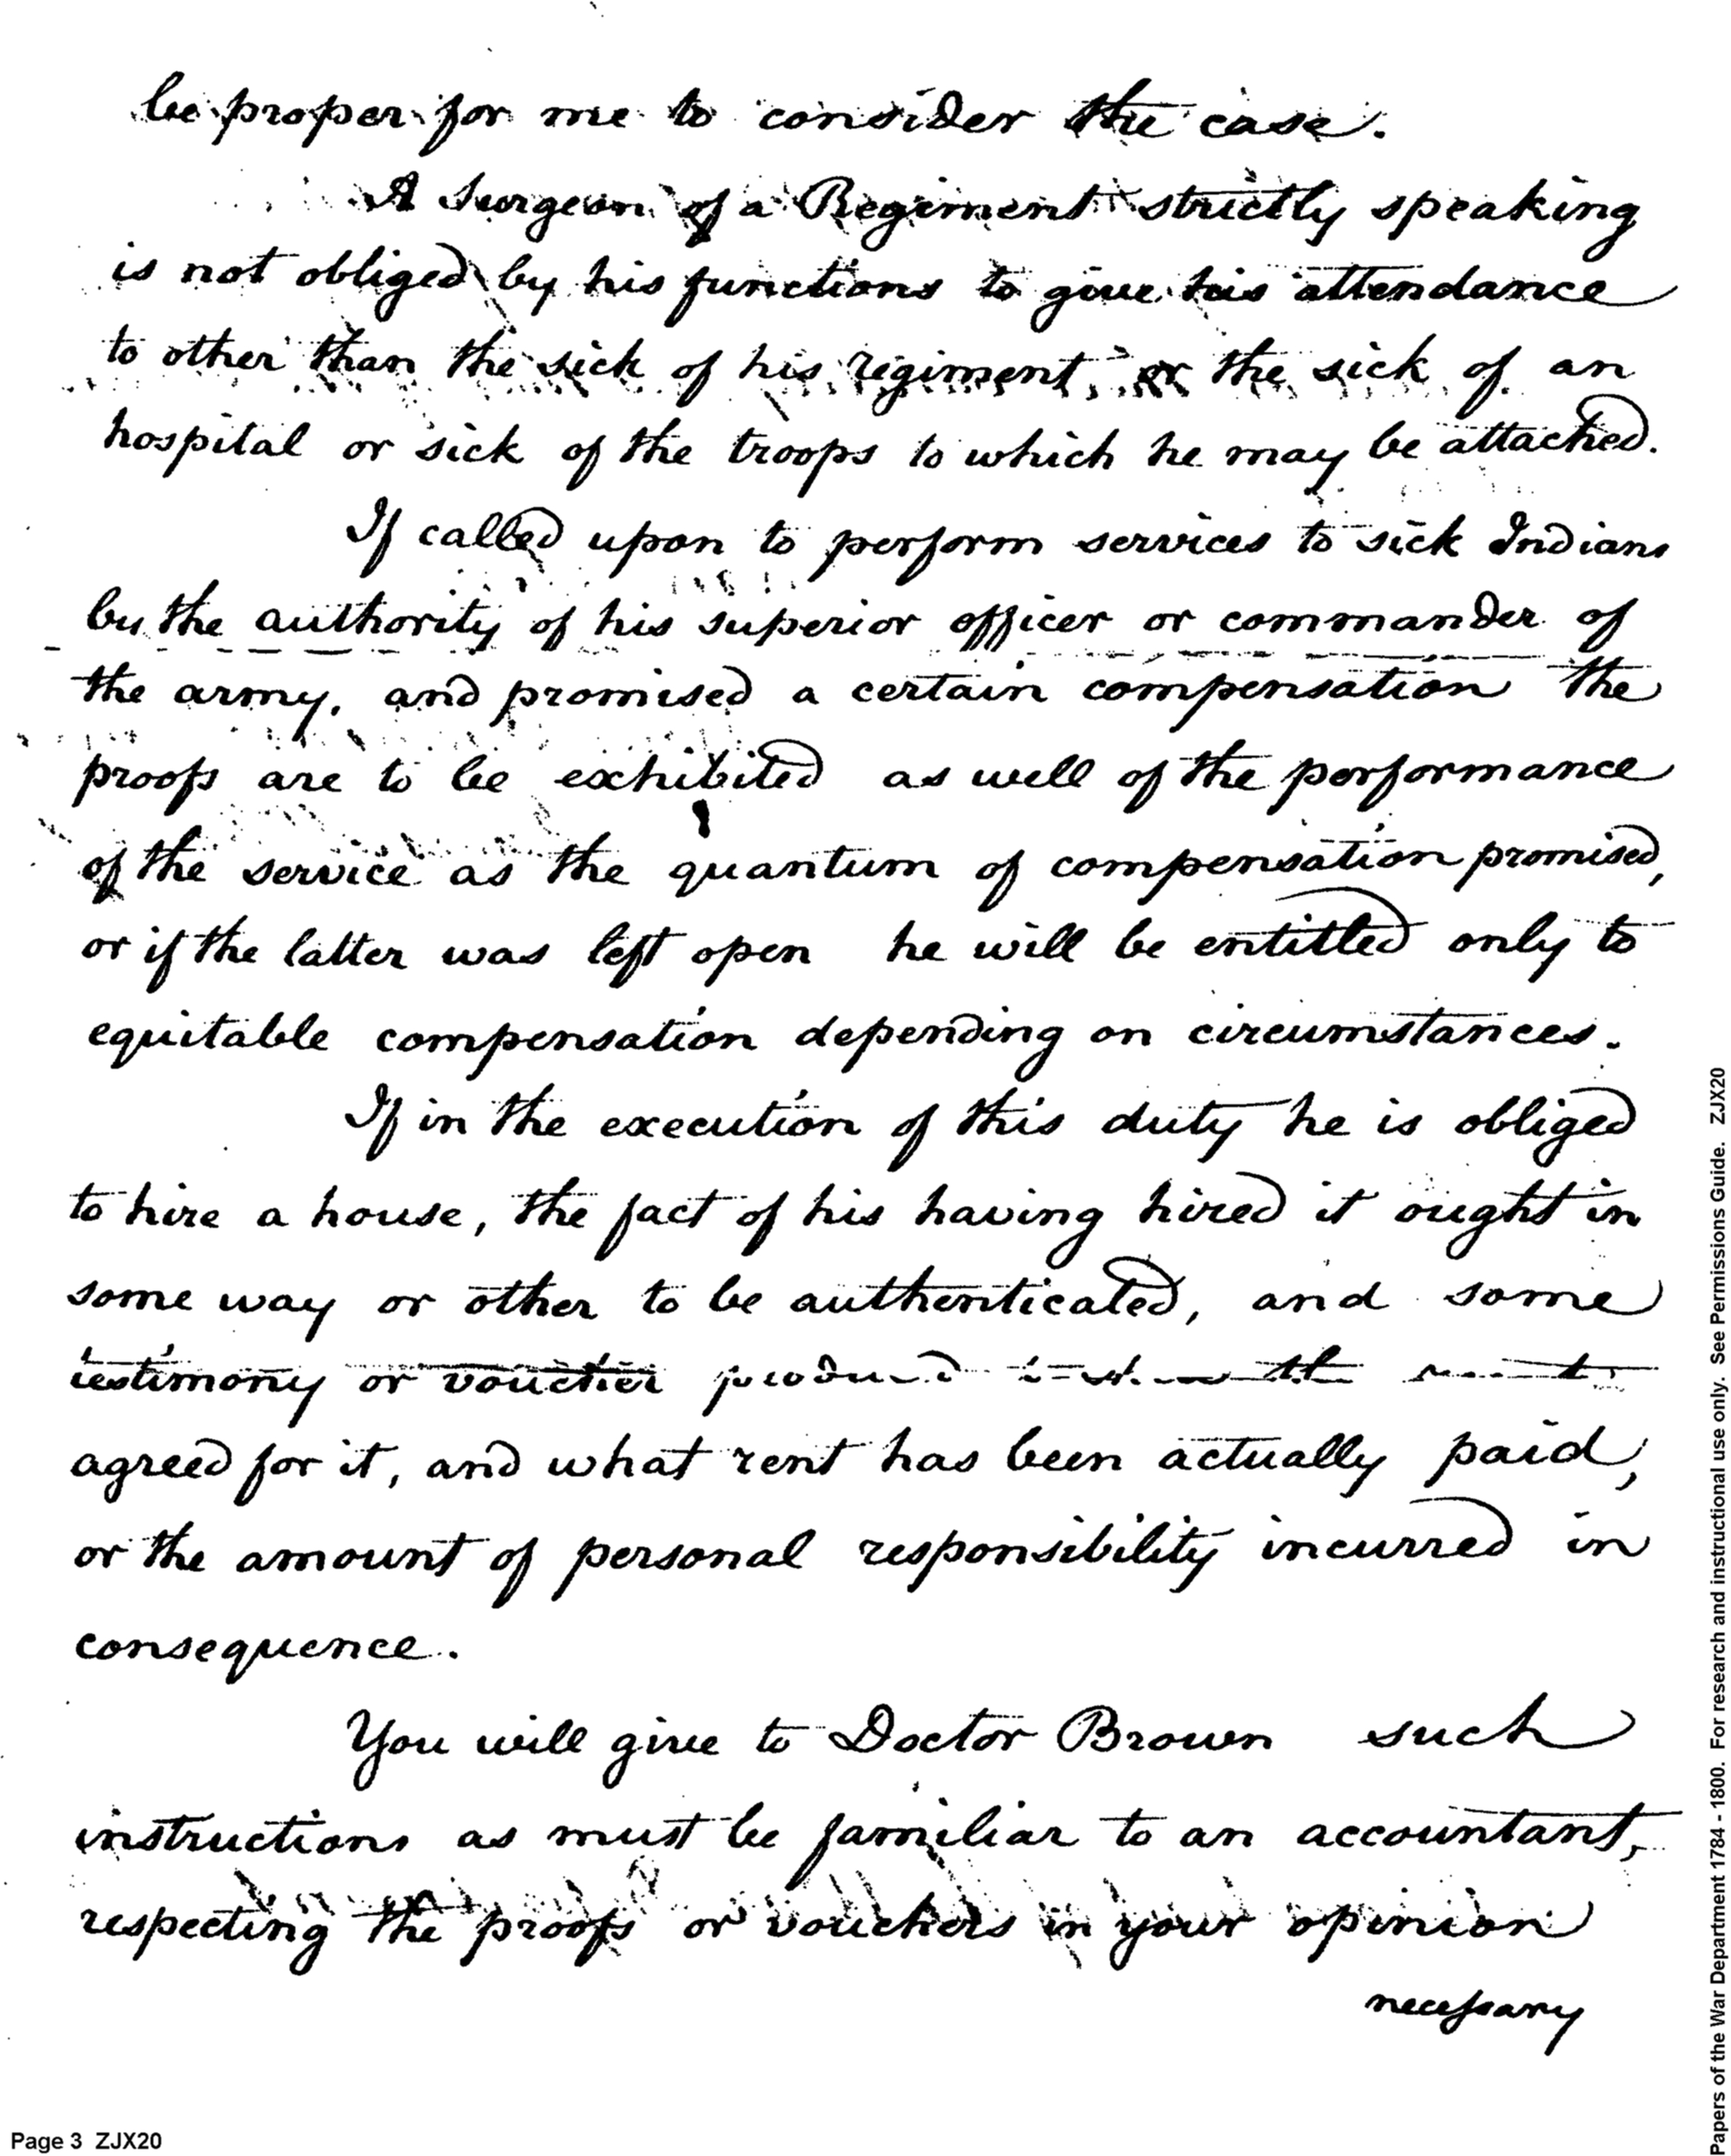 be proper for me to consider the case.
A Surgeon of a Regiment strictly speaking
is not obliged by his functions to give his attendance
to other than the sick of his regiment, or the sick of an
hospital or sick of the troops to which he may be attached.
If called upon to perform services to sick Indians
by the authority of his superior officer or commander of
the army, and promised a certain compensation the
proofs are to be exhibited as well of the performance
of the service as the quantum of compensation promised,
or if the latter was left open he will be entitled only to
equitable compensation depending on circumstances.
If in the execution of this duty he is obliged
to hire a house, the fact of his having hired it ought in
some way or other to be authenticated, and some
testimony or voucher produced
agreed for it, and what rent has been actually paid,
or the amount of personal responsibility incurred in
consequence.
You will give to Doctor Brown such
instructions as must be familiar to an accountant,
respecting the proofs or vouchers in your opinion
necessary
Page 3 ZJX20
Papers of the War Department 1784 - 1800. For research and instructional use only. See Permissions Guide. ZJX20